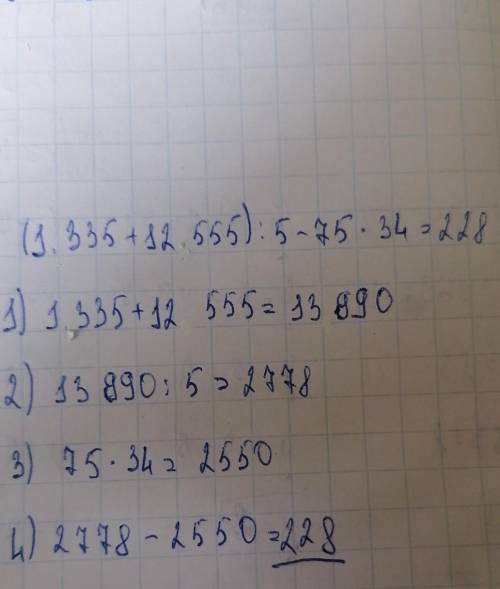 (1.335+12.555):5-75·34=228
1) 1.335+12 555=13 890
2) 13 890:5=2778
3) 75·34=2550
4) 2778-2550=228